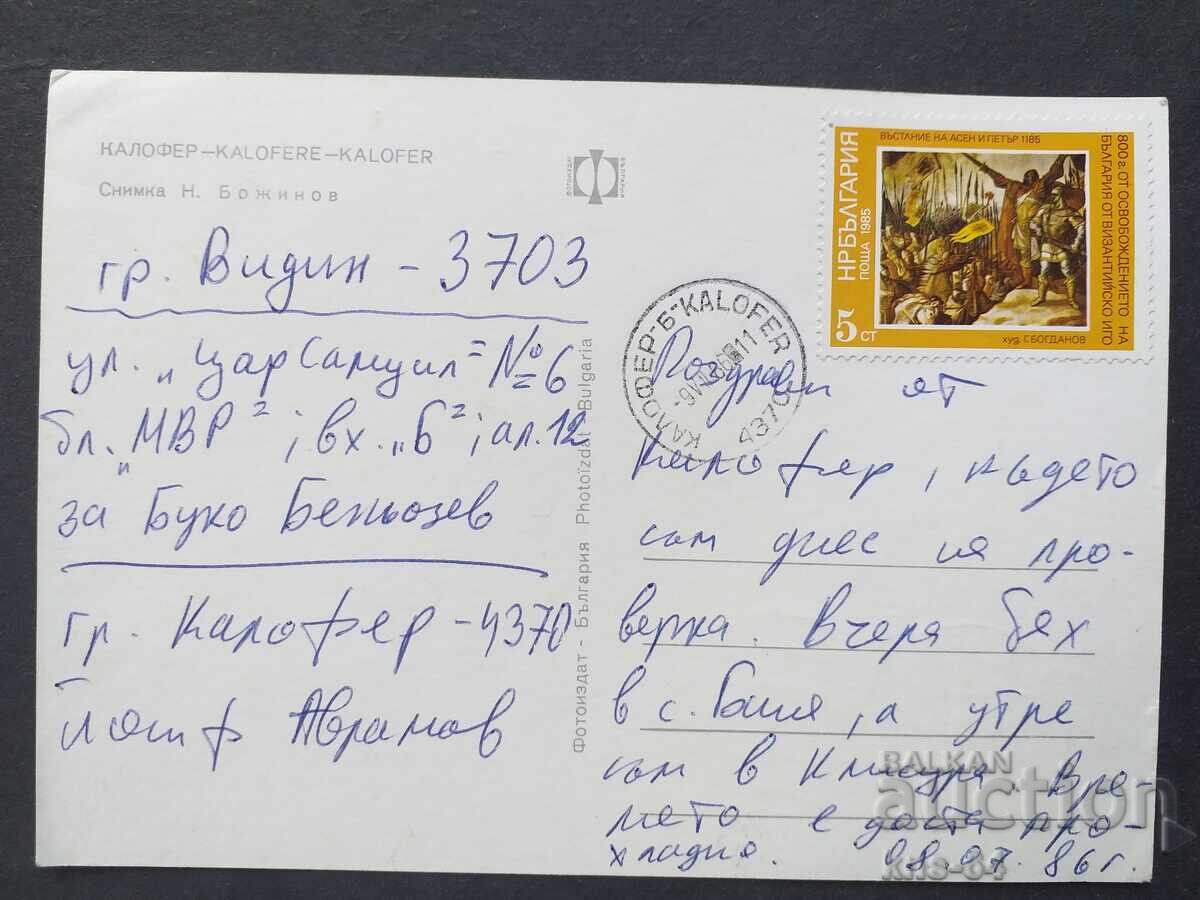 КАЛОФЕР—KALOFERE—KALOFER
Снимка Н. Божинов
ФОТОИЗДАТ
БЪЛГАРИЯ
гр. Видин - 3703
ул. „Цар Самуил" № 6
бл. „МВР"; вх. „Б"; ап. 12
за Буко Беньозев
гр. Калофер - 4370
Йосиф Аврамов
Фотоиздат - България Photoïzdat Bulgaria
ВЪСТАНИЕ НА АСЕН И ПЕТЪР 1185
800 г. ОТ ОСВОБОЖДЕНИЕТО НА
БЪЛГАРИЯ ОТ ВИЗАНТИЙСКО ИГО
НР БЪЛГАРИЯ
ПОЩА 1985
5 СТ
худ. Г. БОГДАНОВ
КАЛОФЕР "Б" KALOFER
4370
Поздрави от
Калофер, където
съм днес на про-
верка. Вчера бях
в с. Баня, а утре
съм в Клисура. Вре-
мето е доста про-
хладно. 08.07.86 г.
BALKAN
auction
klis-64